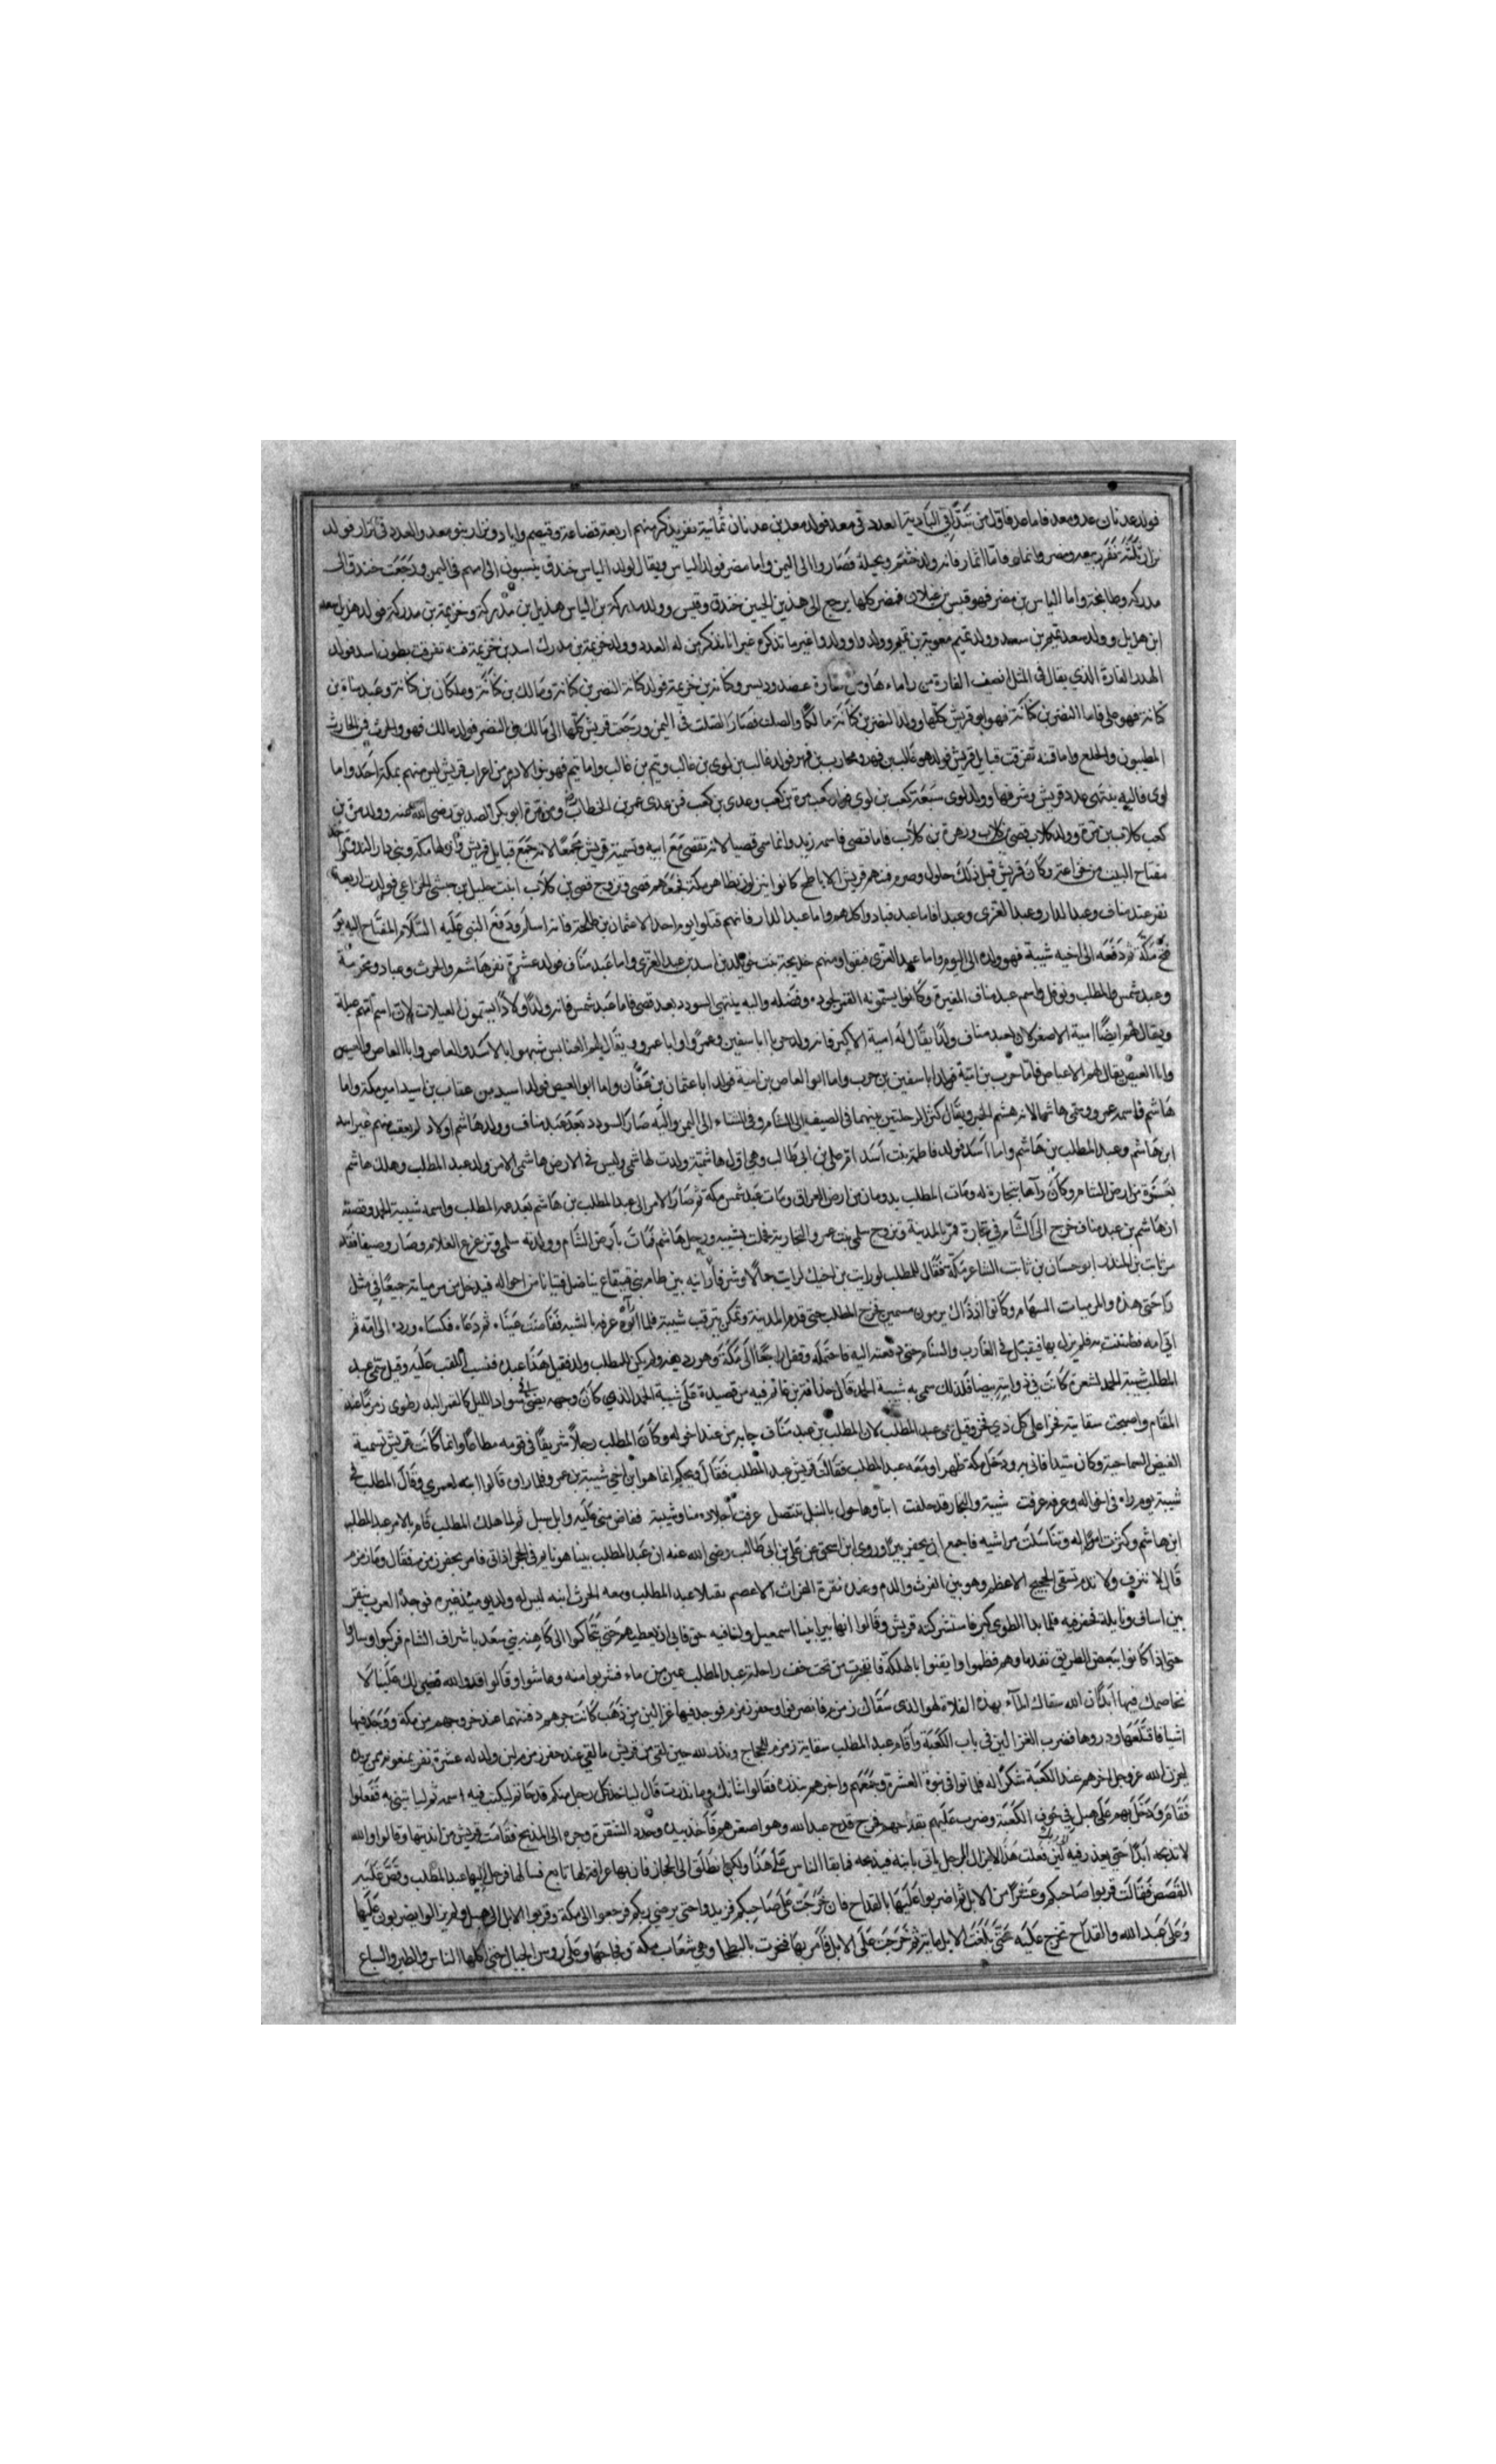 فولد عدنان عد ومعد فاما عد فاول من تبدا في البادية العدد في معد فولد معد بن عدنان ثمانية نفر يذكر منهم اربعة قضاعة وقنص واياد ونزار بنو معد والعدد في نزار فولد
نزار ثلثة نفر ربيعه ومضر وانمار فاما انمار فانه ولد خثعم وبجيلة فصاروا الى اليمن واما مضر فولد الياس ويقال لولد الياس خندق ينسبون الى امهم في اليمن ورجعت خندق الى
مدركه وطابخة واما الياس بن مضر فهو قيس بن غيلان فمضر كلها يرجع الى هذين الحيين خندق وقيس وولد مدركة بن الياس هذيل بن مدركة وخزيمة بن مدركة فولد هذيل سعد
ابن هذيل وولد سعد تميم بن سعد وولد تميم معوية بن تميم وولد واوولدوا غير ما نذكره غير انا نذكر من له العدد وولد خزيمة بن مدرك اسد بن خزيمة فمنه تفرقت بطون اسد فولد
الهون القارة الذي يقال في المثل انصف القارة من راماها ومن القارة عضد وديس وكنانة بن خزيمة فولد كنانة النضر بن كنانة ومالك بن كنانة وملكان بن كنانة وعبد مناة بن
كنانة فهو على فاما النضر بن كنانة فهو ابو قريش كلها وولد النضر بن كنانة مالكا والصلت فصار الصلت في اليمن ورجعت قريش كلها الى مالك بن النضر فولد مالك فهو والحرث فمن الحارث
المطيبون والخلج واما فنه تفرقت قبايل قريش فولد فهر غالب بن فهر ومحارب بن فهر فولد غالب بن لوى بن غالب وتيم بن غالب واما تيم فهو بنو الادرم من اعراب قريش ليس منهم بمكة احد واما
لوى فاليه ينتهى عدد قريش وشرفها وولد لوى سبعة كعب بن لوى فولد كعب مرة بن كعب وعدى بن كعب فمن عدى عمر بن الخطاب ومن مرة ابو بكر الصديق رضى الله عنه وولد مرة بن
كعب كلاب بن مرة وولد كلاب قصى بن كلاب وزهرة بن كلاب فاما قصى فاسمه زيد وانما سمى قصيا لانه تقصى مع ابيه وتسميه قريش مجمعا لانه جمع قبايل قريش وانزلها مكة وبنى دار الندوة
مفتاح البيت من خزاعة وكان قريش قبل ذلك حلول وصرم فمنهم قريش الاباطح كانوا ينزلون بظاهر مكة فجمعهم قصى وتزوج قصى بن كلاب ابنت حليل بن حبشى الخزاعي فولدت اربعة
نفر عبد مناف وعبد الدار وعبد العزى وعبدا فاما عبد فبادوا كلهم واما عبد الدار فانهم قتلوا يوم احد الا عثمان بن طلحة فانه اسلم ودفع النبي عليه السلام المفتاح اليه يوم
فتح مكة ثم دفعه الى اخيه شيبة فهو ولده الى اليوم واما عبد العزى فبقوا ومنهم خديجة بنت خويلد بن اسد بن عبد العزى واما عبد مناف فولد عشرة نفر هاشم والحرث وعباد ومخرمة
وعبد شمس والمطلب ونوفل واسم عبد مناف المغيرة وكانوا يسمونه القمر لجوده وفضله واليه ينتهى السودد بعد قصى فاما عبد شمس فانه ولد اولادا يسمون العبلات لان اسم امهم عبلة
ويقال لهم ايضا امية الاصغر لان لعبد مناف ولدا يقال له امية الاكبر فانه ولد حربا ابا سفين وعمرا وابا عمرو ويقال لهم العنابس شبهوا بالاسد والعاص وابا العاص والعيص
وابا العيص يقال لهم الاعياص فاما حرب بن امية فولد ابا سفين بن حرب واما ابو العاص بن امية فولد ابا عثمان بن عفان واما ابو العيص فولد اسيد بن عتاب بن اسيد امير مكة واما
هاشم فاسمه عمرو وسمى هاشما لانه هشم الخبز ويقال كثر الرحلتين بينهما في الصيف الى الشام وفي الشتاء الى اليمن واليه صار السودد بعد عبد مناف وولد هاشم اولاد لم يعقب منهم غير اسد
ابن هاشم وعبد المطلب بن هاشم واما اسد فولد فاطمة بنت اسد ام على بن ابى طالب وهي اول هاشمية ولدت لهاشمى وليس في الارض هاشمى الا من ولد عبد المطلب وهلك هاشم
بغزة من ارض الشام وكان رآها بتجارة له ومات المطلب بردمان من ارض العراق ومات عبد شمس بمكة ثم صار الامر الى عبد المطلب بن هاشم بعد عمه المطلب واسمه شيبة الحمد وقصته
ان هاشم بن عبد مناف خرج الى الشام في تجارة فمر بالمدينة وتزوج سلمى بنت عمرو النجارية فحملت بشيبه ورحل هاشم فمات بارض الشام وولدته سلمى وترعرع الغلام وصار وصيفا فقدم
ثابت بن المنذر ابو حسان بن ثابت الشاعر مكة فقال للمطلب لو رايت بن اخيك لرايت جمالا وشرفا رايته بين اطام بني قينقاع يناضل فتيانا من اخواله فيدخل من مرماتيه جميعا في مثل
راحتى هذه والمرميات السهام وكانوا اذ ذاك يرمون بسهمين فخرج المطلب حتى قدم المدينة وتمكن يترقب شيبة فلما رآه عرفه بالشبه ففاضت عينا ثم دعاه فكساه ورده الى امه ثم
اتى امه فضنت به فلم يزل بها فيقبل في الغارب والسنام حتى دفعته اليه فاحتمله وقفل راجعا الى مكة وهو رديفه ولم يكن للمطلب ولد فقيل هذا عبده فنسب اللقب عليه وقيل سمى عبد
المطلب شيبة الحمد لشعرة كانت في ذوابته بيضا فلذلك سمى به شيبة الحمد قال حذافة بن غانم فيه من قصيدة على شيبة الحمد الذي كان وجهه يضئ سواد الليل كالقمر البدر وطوى زمزما عند
المقام واصبحت سقايته فخرا على كل ذي فخر وقيل سمى عبد المطلب لان المطلب بن عبد مناف جابه من عند اخواله وكان المطلب رجلا شريفا في قومه مطاعا وانما كانت قريش تسميه
الفيض السماحته وكان سيدا فاتى به ودخل مكة ظهرا ومعه عبد المطلب فقالت قريش عبد المطلب فقال ويحكم انما هو ابن اخي شيبة بن عمرو فلما راوه قالوا ابنه لعمري وقال المطلب في
شيبة يوم رده في اخواله وعرفه عرفت شيبة والنجار قد حلفت ابناوها حول بالنبل تنتصل عرفت اجلاده منا وشيبته ففاض مني عليه وابل سبل ثم لما هلك المطلب قام بالامر عبد المطلب
ابن هاشم وكثرت امواله وتناسلت مواشيه فاجمع ان يحفر بيرا وروى ابن اسحق عن على بن ابى طالب رضى الله عنه ان عبد المطلب بينا هو نايم في الحجر اذ اتى فامر بحفر زمزم فقال وما زمزم
قال لا تنزف ولا تذم تسقى الحجيج الاعظم وهو بين الفرث والدم وعند نقرة الغراب الاعصم فغدا عبد المطلب ومعه الحرث ابنه ليس له ولد يوميذ غيره فوجد الغراب ينقر
بين اساف ونايلة فحفر فيه فلما بدا الطوى كبر فاستشركته قريش وقالوا انها بير ابينا اسمعيل ولنا فيه حق فابى ان يعطيهم حتى تحاكموا الى كاهنه بني سعد باشراف الشام فركبوا وساروا
حتى اذا كانوا ببعض الطريق نفد ماوهم فظموا وايقنوا بالهلكة فانفجرت من تحت خف راحلة عبد المطلب عين من ماء فشربوا منه وعاشوا وقالوا قد والله قضى لك علينا لا
نخاصمك فيها ابدا ان الله سقاك المآء بهذه الفلاه لهو الذى سقاك زمزم فانصرفوا وحفر زمزم فوجد فيها غزالين من ذهب كانت جرهم دفنتهما عند خروجهم من مكة ووجد فيها
اشيافا قلعيها ودروعا فضرب الغزالين في باب الكعبة واقام عبد المطلب سقاية زمزم للحجاج ونذر لله حين لقى من قريش ما لقى عند حفر زمزم لين ولد له عشرة نفر يمنعونه لينحرن
لله عز وجل اخرهم عند الكعبة شكرا له فلما توافى بنوه العشرة وجمعهم واخبرهم بنذره فقالوا شانك وما نذرت قال لياخذ كل رجل منكم قدحا ثم ليكتب فيه اسمه ثم لياتيني به ففعلوا
فقام ودخل بهم على هبل في جوف الكعبة وضرب عليهم بقداحهم فخرج قدح عبد الله وهو اصغرهم فاخذ بيده وحدد الشفرة وجره الى المذبح فقامت قريش من انديتها وقالوا والله
لا تذبحه ابدا حتى يعذر فيه لئن فعلت هذا لا يزال الرجل ياتى بابنه فيذبحه فما بقا الناس على هذا ولكن انطلق الى الحجاز فان بها عرافة لها تابع فسالها فرحل اليها عبد المطلب وقص عليه
القصص فقالت قربوا صاحبكم وعشرا من الابل ثم اضربوا عليها بالقداح فان خرجت على صاحبكم فزيدوا حتى يرضى ربكم فرجعوا الى مكة وقربوا الابل الى هبل ولم يزالوا يضربون عليها
وعلى عبد الله والقداح تخرج عليه حتى بلغت الابل ماية ثم خرجت على الابل فامر بها فنحرت بالبطحا وهي شعاب مكة وفجاجها وعلى روس الجبال حتى اكلها الناس والطير والسباع